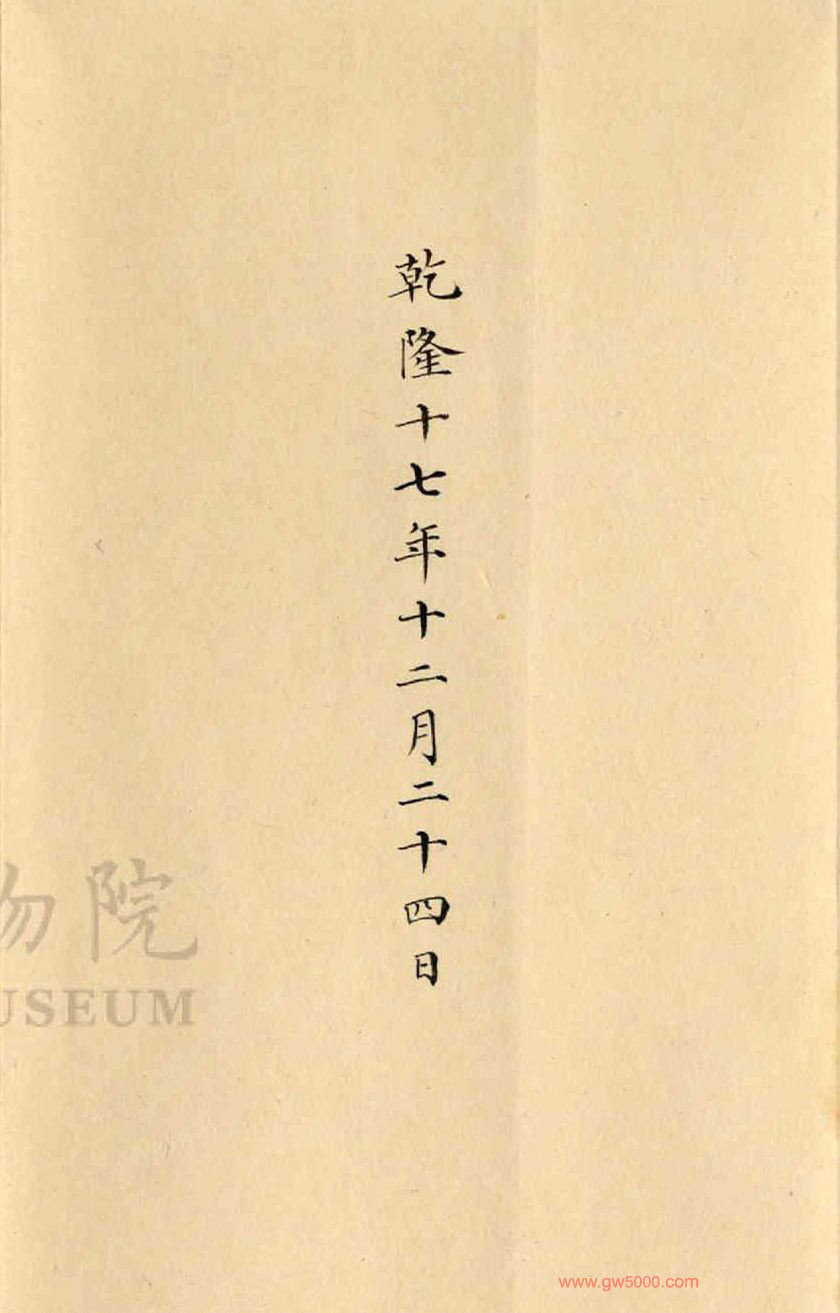 乾隆十七年十二月二十四日
物院
MUSEUM
www.gw5000.com